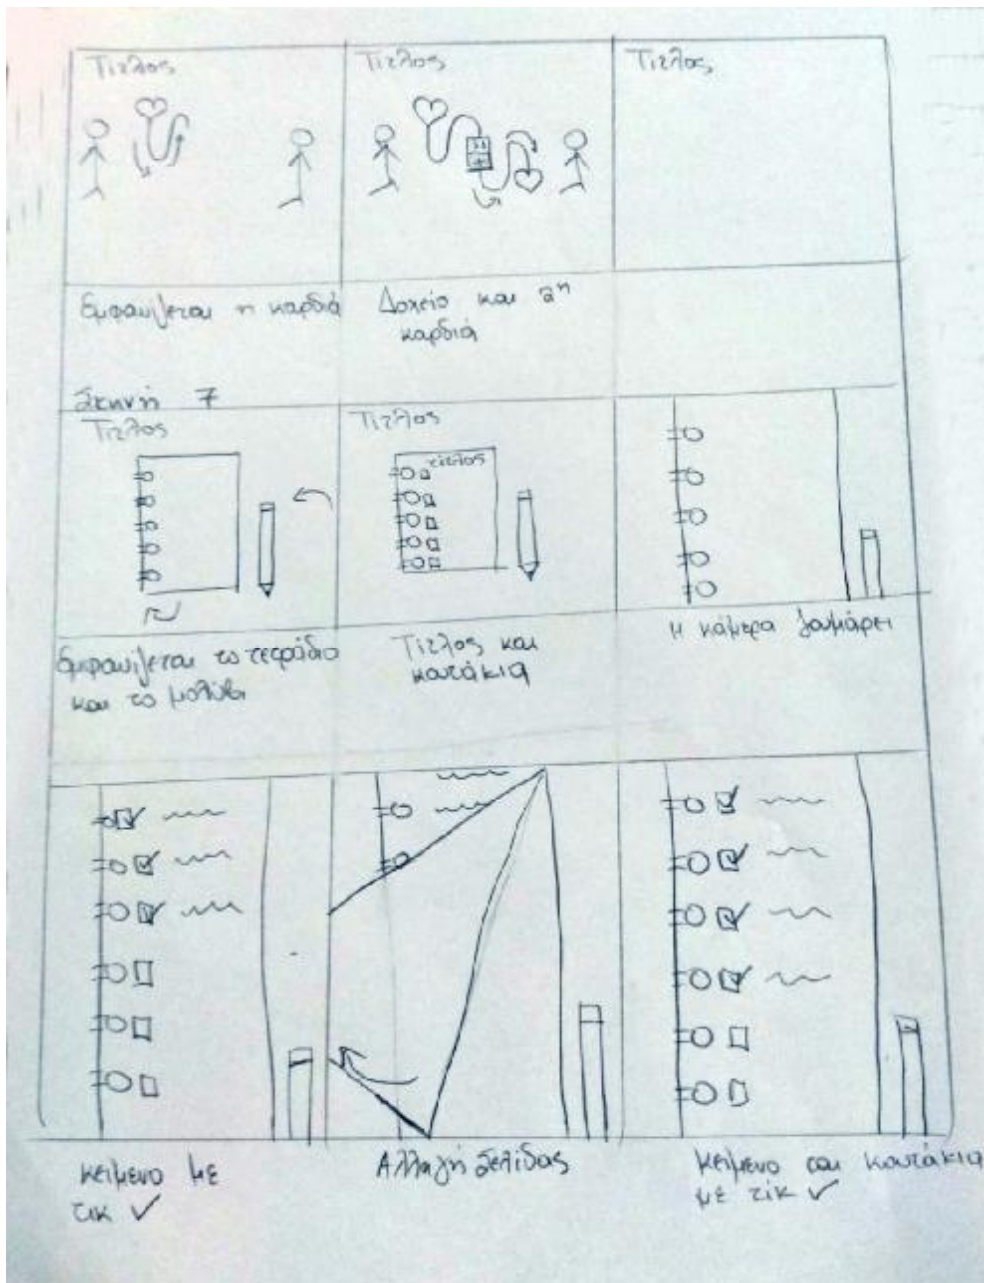 Τίτλος
Τίτλος
Τίτλος
Εμφανίζεται η καρδιά
Δοχείο και 2η
καρδιά
Σκηνή 7
Τίτλος
Τίτλος
τίτλος
Εμφανίζεται το τετράδιο
και το μολύβι
Τίτλος και
κουτάκια
Η κάμερα ζουμάρει
κείμενο με
τικ ✓
Αλλαγή σελίδας
κείμενο και κουτάκια
με τικ ✓